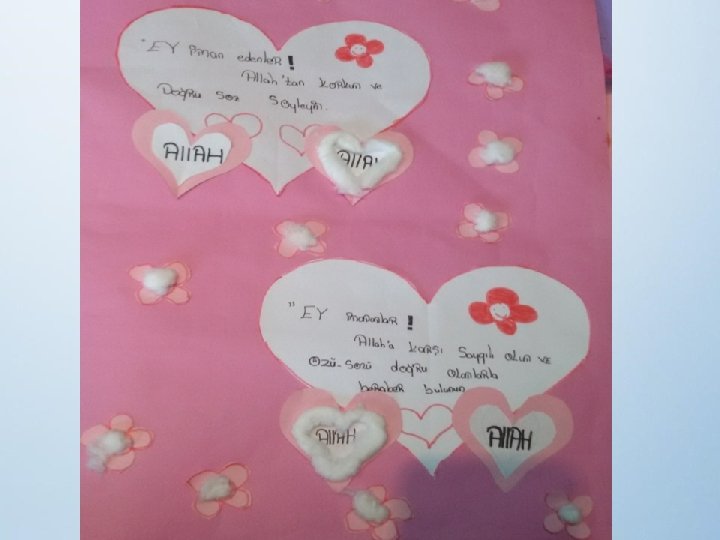 "EY iman edenler!
Allah'tan korkun ve
Doğru söz söyleyin.
AllAH
AllA
"EY inananlar!
Allah'a karşı Saygılı olun ve
Özü-Sözü doğru olanlarla
beraber bulunun
AllAH
AllAH